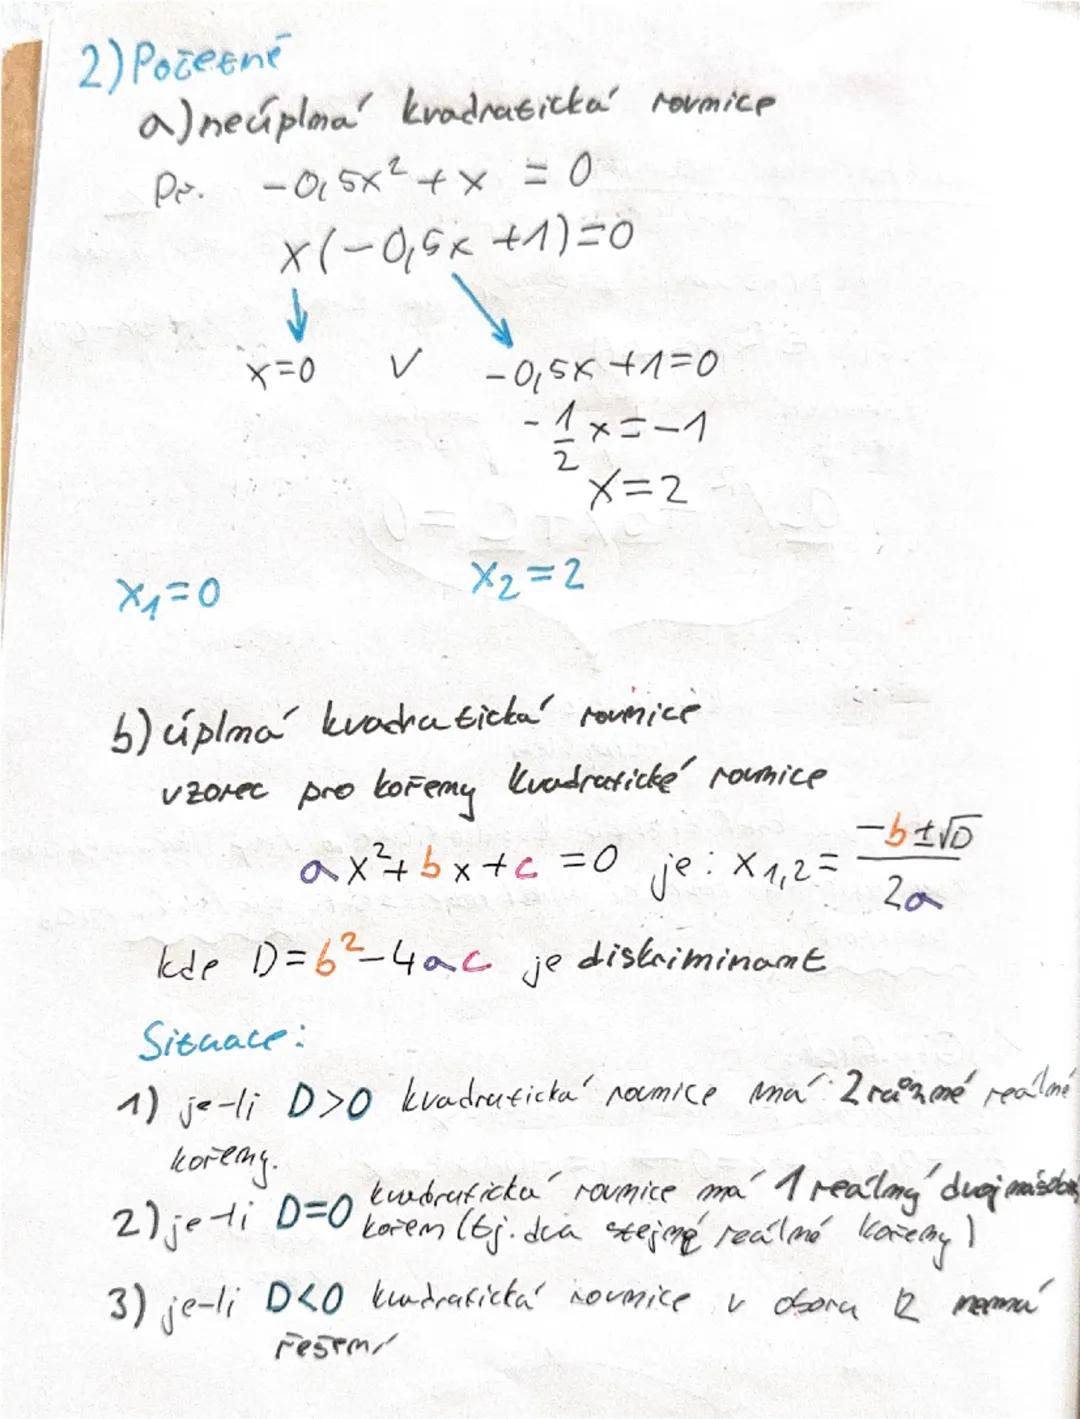 2) Početně
a) neúplná kvadratická rovnice
Př. -0,5x² + x = 0
x(-0,5x +1)=0
x=0 ∨ -0,5x +1=0
-1/2 x=-1
x=2
x₁=0 x₂=2
b) úplná kvadratická rovnice
vzorec pro kořeny kvadratické rovnice
ax²+bx+c=0 je: x₁,₂= (-b±√D)/2a
kde D=b²-4ac je diskriminant
Situace:
1) je-li D>0 kvadratická rovnice má 2 různé reálné
kořeny.
2) je-li D=0 kvadratická rovnice má 1 reálný dvojnásobný
kořem (tj. dva stejné reálné kořeny)
3) je-li D<0 kvadratická rovnice v oboru R nemá
řešení